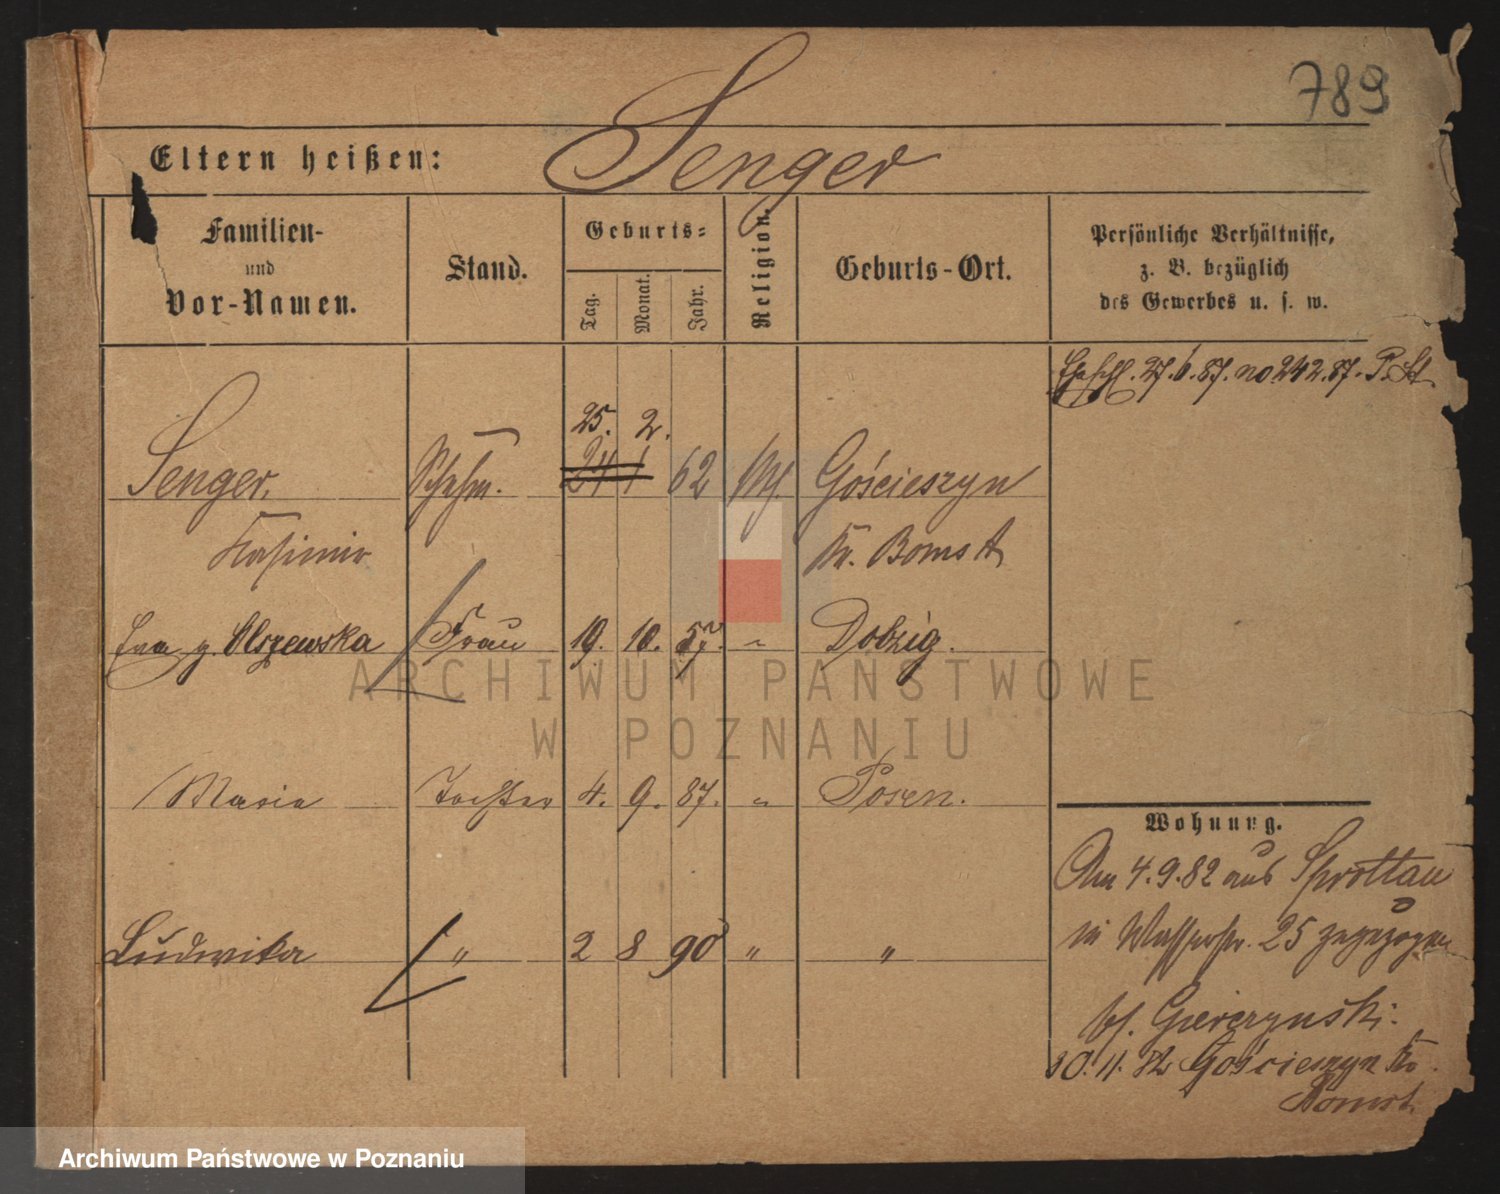 789
Eltern heißen: Senger
Familien- und Vor-Namen.
Stand.
Geburts=
Tag.
Monat.
Jahr.
Religion.
Geburts-Ort.
Persönliche Verhältnisse,
z. B. bezüglich
des Gewerbes u. s. w.
27.6.87. no 242.87. P. St
25. 2.
Senger, 24 1 62 Gościeszyn
Kasimir Kr. Bomst
Eva g. Olszewska Frau 19. 10. 57. " Dobzig.
Maria Tochter 4. 9. 87. " Posen.
Ludwika " 2 8 90 " "
Wohnung.
Am 4.9.82 aus Sprottau
in Wasserstr. 25 zugezogen
bf. Gierczynski.
30.11.82 Gościeszyn Kr.
Bomst.
ARCHIWUM PAŃSTWOWE
W POZNANIU
Archiwum Państwowe w Poznaniu